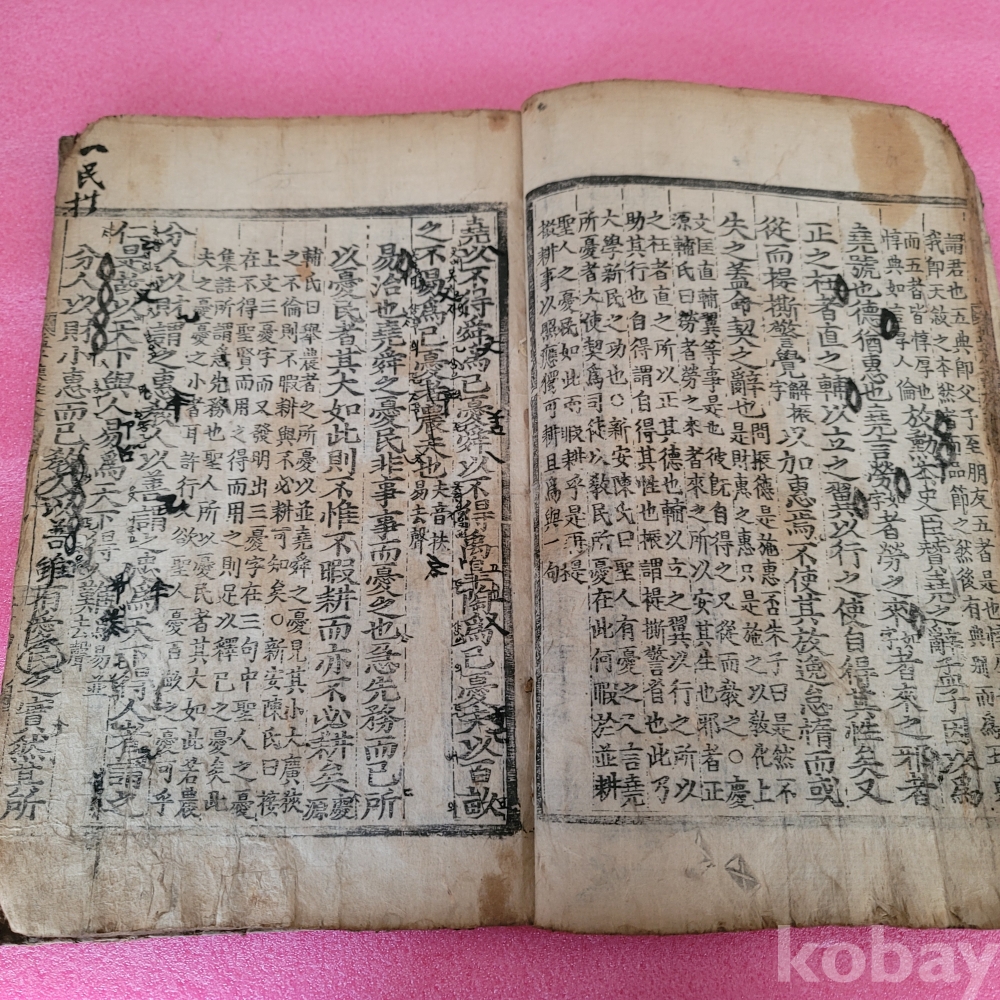 而五者皆惇厚也
惇典如惇人倫
放勳本史臣贊堯之辭孟子因以爲
堯號也德猶惠也堯言勞者勞之來者來之邪者
正之枉者直之輔以立之翼以行之使自得其性矣又
從而提撕警覺以加惠焉不使其放逸怠惰而或
失之蓋命契之辭也
問振德是施惠否朱子曰是然不
是財惠之惠只是施之以敎化上
文匡直輔翼等事是也彼旣自得之又從而敎之○慶
源輔氏曰勞者勞之來者來之所以安其生也邪者正
之枉者直之所以正其德也輔以立之翼以行之所以
助其行也自得謂自得其性也振謂提撕警者也此乃
大學新民之功也○新安陳氏曰聖人有憂之又言堯
所憂者大使契爲司徒以敎民所憂在此何暇於並耕
聖人之憂民如此而暇耕乎是正提
掇耕事以照應儻可耕且爲與一句
一民
堯以不得舜爲己憂舜以不得禹皐陶爲己憂夫以百畝
之不易爲己憂者農夫也
夫音扶
易去聲
易治也堯舜之憂民非事事而憂之也急先務而已所
以憂民者其大如此則不惟不暇耕而亦不必耕矣
慶源
輔氏曰舉農者之所憂以並堯舜之憂見其小大廣狹
之不倫則不暇耕與不必耕可知矣○新安陳氏曰
上文三憂字而又發明出三憂字在三句中聖人之憂
在不得聖賢而用之得而用之則足以釋己之憂矣此
集註所謂急先務也聖人所以憂民者其大如此若農
夫之憂憂之小者耳許行欲聖人憂百畝之憂可乎
分人以財謂之惠敎人以善謂之忠爲天下得人者謂之
仁是故以天下與人易爲天下得人難
易並
去聲
分人以財小惠而已敎人以善雖有愛民之實然其所
kobay